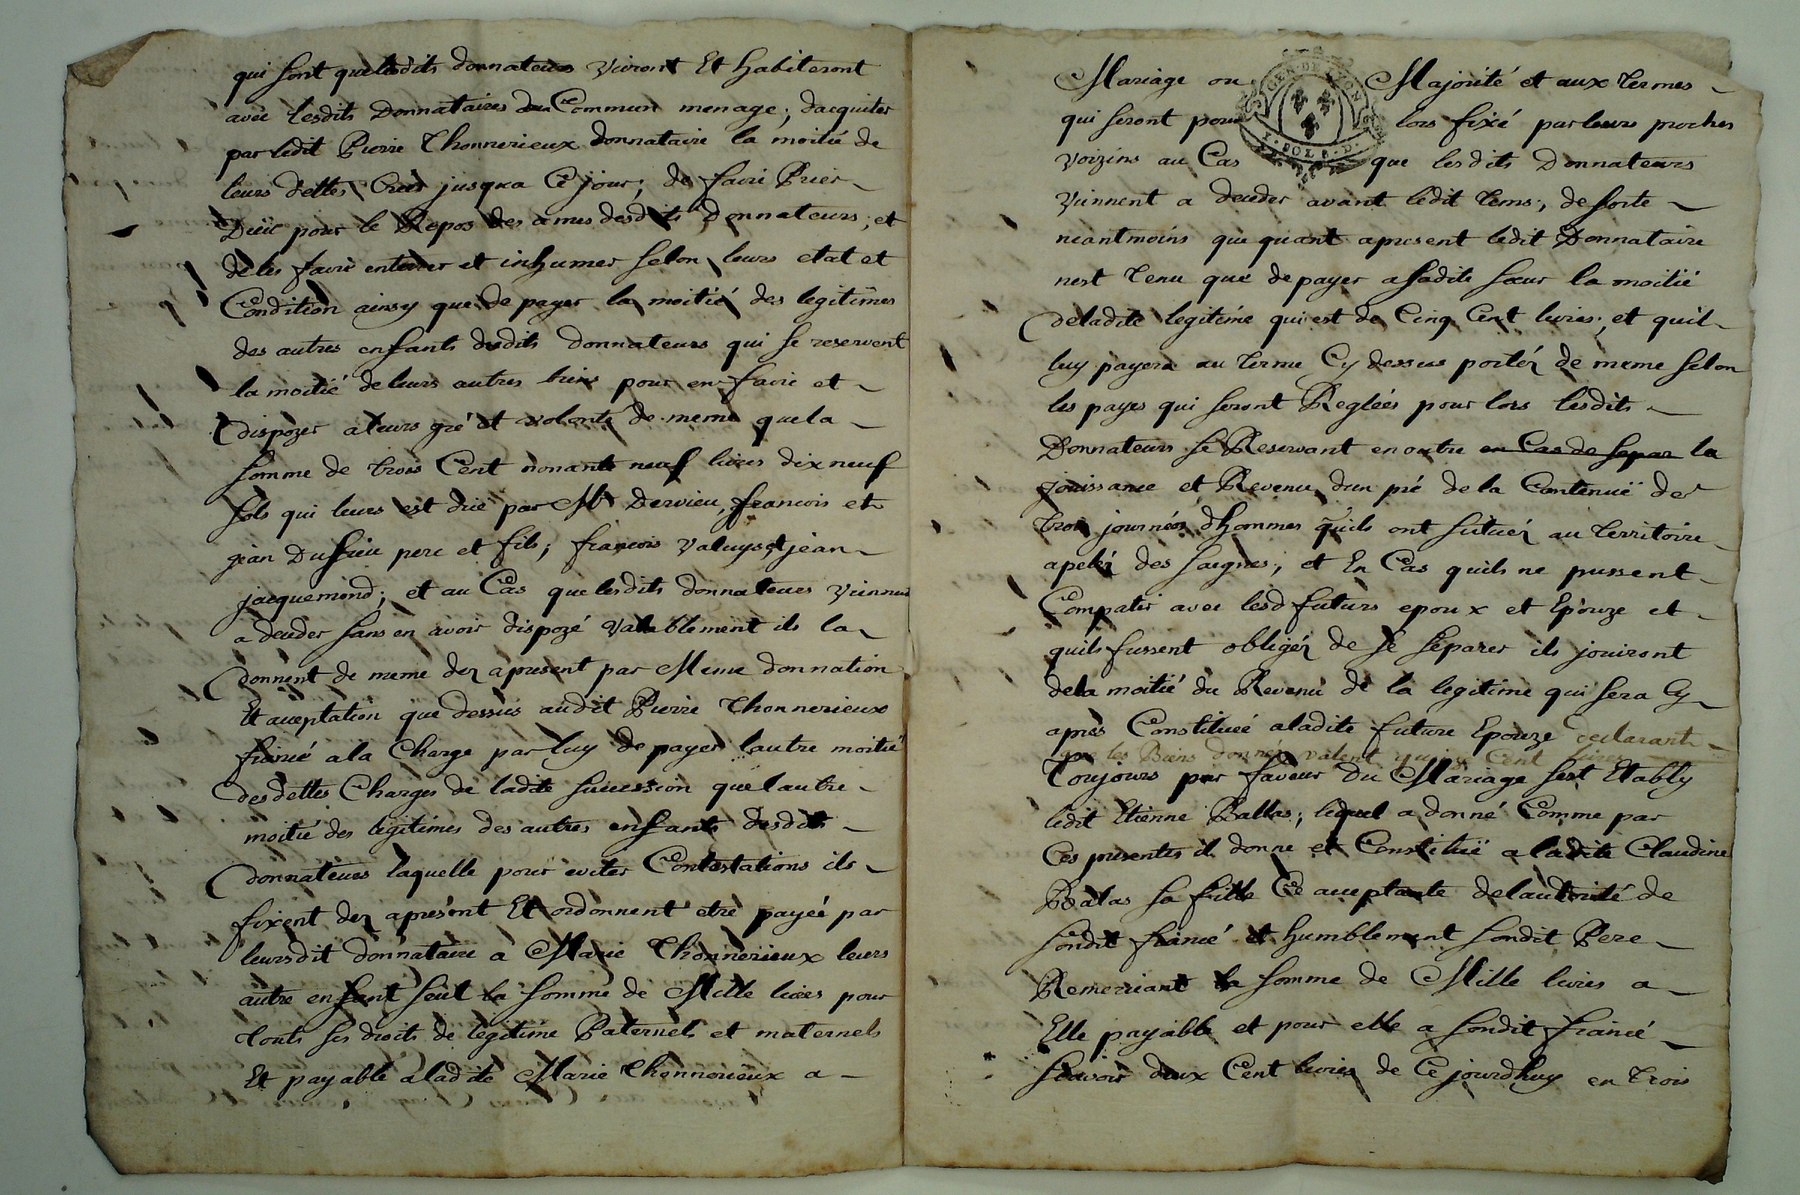 qui sont que lesdits donnateurs vivront Et habiteront
avec lesdits Donnataires du Commun menage; dacquiter
par ledit Pierre Thonnerieux donnataire la moitié de
leurs dettes Crées jusqua Ce jour; de faire Prier
Dieu pour le Repos des ames desdits Donnateurs; et
de les faire enterrer et inhumer selon leurs etat et
Condition ainsy que de payer la moitié des legitimes
des autres enfants dudits donnateurs qui se reservent
la moitié de leurs autres biens pour en faire et
dispozer a leurs gré et volonté de meme que la
somme de trois Cent nonante neuf livres dix neuf
sols qui leurs est düe par Mr Dervieu, françois et
jean Dussieu pere et fils; françois Valuys et jean
jacquemond; et au Cas que lesdits donnateurs viennent
a deceder sans en avoir dispozé valablement ils la
donnent de meme dez apresent par Meme donnation
Et acceptation que dessus audit Pierre Thonnerieux
fiancé a la Charge par luy de payer lautre moitié
des dettes Charges de ladite succession que lautre
moitié des legitimes des autres enfants desdits
donnateurs laquelle pour eviter Contestations ils
fixent dez apresent Et ordonnent etre payée par
leursdit donnataire a Marie Thonnerieux leurs
autre enfant seul la somme de Mille livres pour
touts ses droits de legitime Paternels et maternels
Et payable a ladite Marie Thonnerieux a
Mariage ou Majorité et aux termes
qui seront pour lors fixé par leurs proches
GEN. DE LYON
SOLS
voizins au Cas que lesdits Donnateurs
viennent a deceder avant ledit tems; de sorte
neantmoins que quant apresent ledit Donnataire
nest tenu que de payer a sadite sœur la moitié
deladite legitime qui est de Cinq Cent livres; et quil
luy payera au terme Cy dessus portéz de meme selon
les payes qui seront Reglées pour lors lesdits
Donnateurs se Reservant en outre en Cas de separ la
jouissance et Revenu dun pré de la Contenüe de
trois journéez dhommes quils ont situéz au territoire
apeléz des saignes; et En Cas quils ne pussent
Compatir avec lesd futurs epoux et Epouze et
quils fussent obligéz de se separer ils jouiront
dela moitié du Revenu de la legitime qui sera Cy
après Constituée a ladite future Epouze declarant
que les Biens donnez valent Cent
Toujours par faveur du Mariage sest Etably
ledit Etienne Ballas; lequel a donné Comme par
Ces presentes il donne et Constitüe a ladite Claudine
Balas sa fille Ce acceptante delautorité de
sondit fiancé et humblement sondit Pere
Remerciant la somme de Mille livres a
Elle payable et pour elle a sondit fiancé
scavoir deux Cent livres de Ce jourdhuy en trois